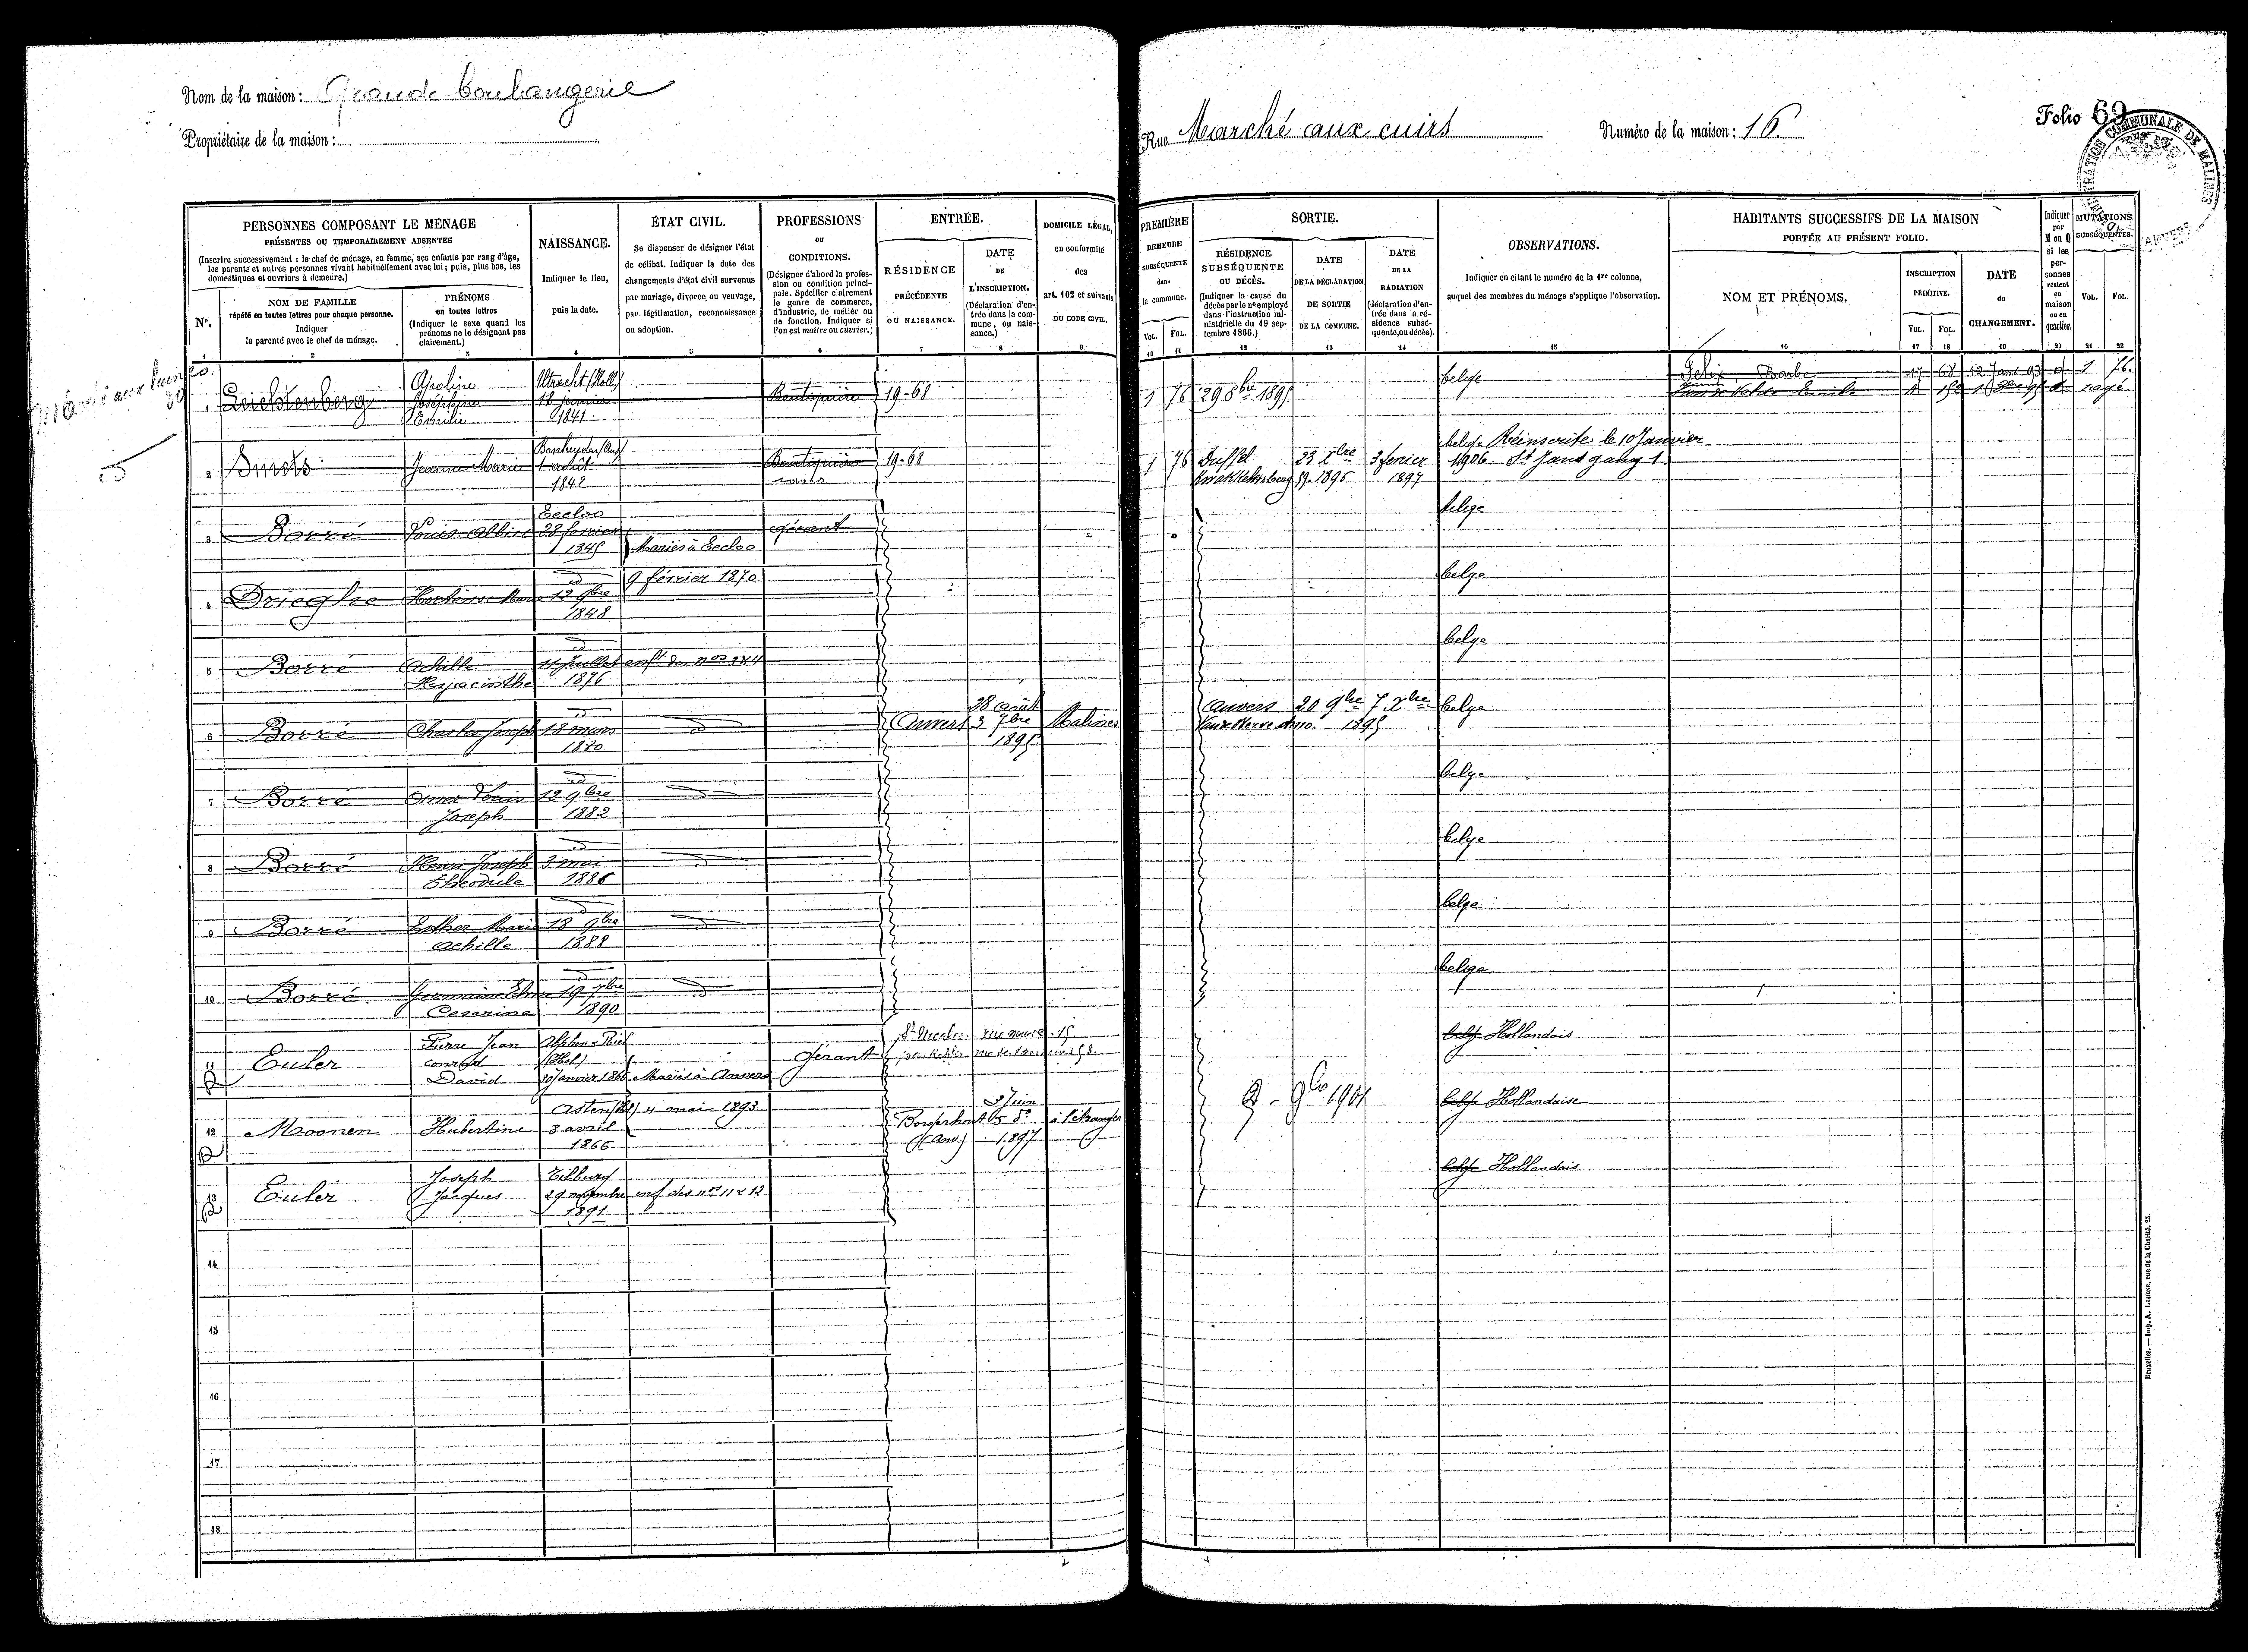 Nom de la maison : Grande boulangerie
Propriétaire de la maison :
Rue Marché aux cuirs
Numéro de la maison : 16
Folio 69
ADMINISTRATION COMMUNALE DE MALINES
ANVERS
PERSONNES COMPOSANT LE MÉNAGE
PRÉSENTES OU TEMPORAIREMENT ABSENTES
(Inscrire successivement : le chef de ménage, sa femme, ses enfants par rang d'âge,
les parents et autres personnes vivant habituellement avec lui ; puis, plus bas, les
domestiques et ouvriers à demeure.)
Nº.
NOM DE FAMILLE
répété en toutes lettres pour chaque personne.
Indiquer
la parenté avec le chef de ménage.
PRÉNOMS
en toutes lettres
(Indiquer le sexe quand les
prénoms ne le désignent pas
clairement.)
NAISSANCE.
Indiquer le lieu,
puis la date.
ÉTAT CIVIL.
Se dispenser de désigner l'état
de célibat. Indiquer la date des
changements d'état civil survenus
par mariage, divorce, ou veuvage,
par légitimation, reconnaissance
ou adoption.
PROFESSIONS
OU
CONDITIONS.
(Désigner d'abord la profes-
sion ou condition princi-
pale. Spécifier clairement
le genre de commerce,
d'industrie, de métier ou
de fonction. Indiquer si
l'on est maître ou ouvrier.)
ENTRÉE.
RÉSIDENCE
PRÉCÉDENTE
OU NAISSANCE.
DATE
DE
L'INSCRIPTION.
(Déclaration d'en-
trée dans la com-
mune, ou nais-
sance.)
DOMICILE LÉGAL,
en conformité
des
art. 102 et suivants
DU CODE CIVIL.
PREMIÈRE
DEMEURE
SUBSÉQUENTE
dans
la commune.
VOL. FOL.
SORTIE.
RÉSIDENCE
SUBSÉQUENTE
OU DÉCÈS.
(Indiquer la cause du
décès par le nº employé
dans l'instruction mi-
nistérielle du 19 sep-
tembre 1866.)
DATE
DE LA DÉCLARATION
DE SORTIE
DE LA COMMUNE.
DATE
DE LA
RADIATION
(déclaration d'en-
trée dans la ré-
sidence subsé-
quente, ou décès).
OBSERVATIONS.
Indiquer en citant le numéro de la 1re colonne,
auquel des membres du ménage s'applique l'observation.
HABITANTS SUCCESSIFS DE LA MAISON
PORTÉE AU PRÉSENT FOLIO.
NOM ET PRÉNOMS.
INSCRIPTION
PRIMITIVE.
VOL. FOL.
DATE
du
CHANGEMENT.
Indiquer
par
M ou Q
si les
per-
sonnes
restent
en
maison
ou en
quartier.
MUTATIONS
SUBSÉQUENTES.
VOL. FOL.
1 2 3 4 5 6 7 8 9 10 11 12 13 14 15 16 17 18 19 20 21 22
Apoline Utrecht (Holl) belge Felix, Barbe 17 68 12 Janv 93 1 76.
1 Leichtenberg Joséphine 18 janvier Boutiquière 19-68 1 76 29 8bre 1895 rayé
Emilie 1841
belge Réinscrite le 10 Janvier
2 Smets Jeanne Marie 1 août Boutiquière 19-68 1 76 Duffel 23 Xbre 3 fevrier 1906
1842 1896 1897
Eecloo belge
3 Borré Louis Albin 28 fevrier gérant
1845 Mariés à Eecloo
id 9 février 1870 belge
4 Drieghe Hortense Marie 12 9bre
1848
id belge
5 Borré Achille 11 Juillet enft des nos 3&4
Hyacinthe 1876
28 Août Anvers 20 9bre 7 Xbre belge
6 Borré Charles Joseph 18 mars id Anvers 3 7bre Malines 1895
1880 1895
id belge
7 Borré Omer Louis 12 9bre id
Joseph 1882
id belge
8 Borré Henri Joseph 3 mai id
Théodule 1886
id belge
9 Borré Esther Marie 18 9bre id
Achille 1888
id belge
10 Borré Germaine 19 7bre id
Cesarine 1890
Pierre Jean Alphen St Nicolas rue neuve 15 belge Hollandais
11 Euler conrad (Hol) gérant
David 10 Janvier 1860 Mariés à Anvers
Asten (Hol) 4 mai 1893 2 Juin belge Hollandaise
12 Moonen Hubertine 8 avril Borgerhout 5 do à l'étranger
1866 (Anv.) 1897
Joseph Tilburg belge Hollandais
13 Euler Jacques 29 novembre enf des nos 11 & 12
1891
14
15
16
17
18
Bruxelles. — Imp. A. LESIGNE, rue de la Charité, 23.